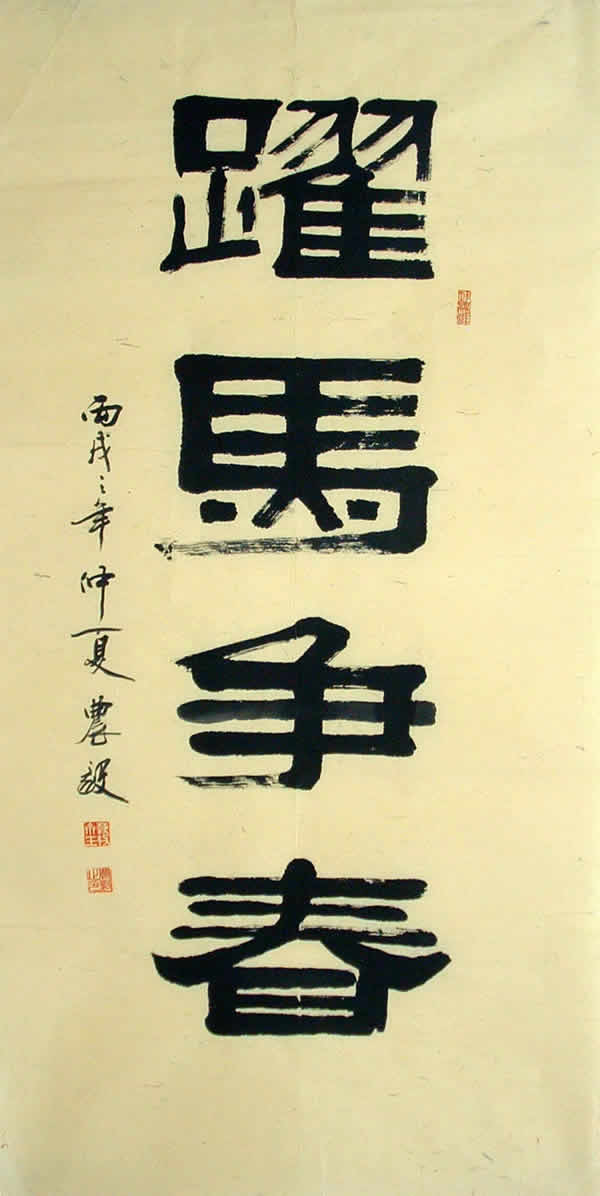 躍馬争春
丙戌之年仲夏農毅